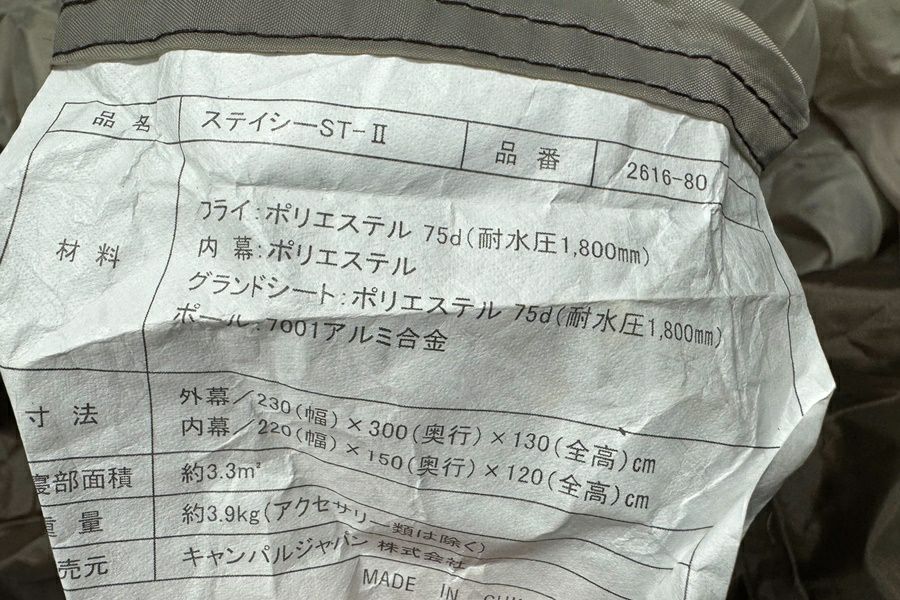 品名 ステイシーST-Ⅱ 品番 2616-80
材料 フライ:ポリエステル 75d(耐水圧1,800mm)
内幕:ポリエステル
グランドシート:ポリエステル 75d(耐水圧1,800mm)
ポール:7001アルミ合金
寸法 外幕/230(幅)×300(奥行)×130(全高)cm
内幕/220(幅)×150(奥行)×120(全高)cm
寝部面積 約3.3㎡
重量 約3.9kg(アクセサリー類は除く)
売元 キャンパルジャパン 株式会社
MADE IN